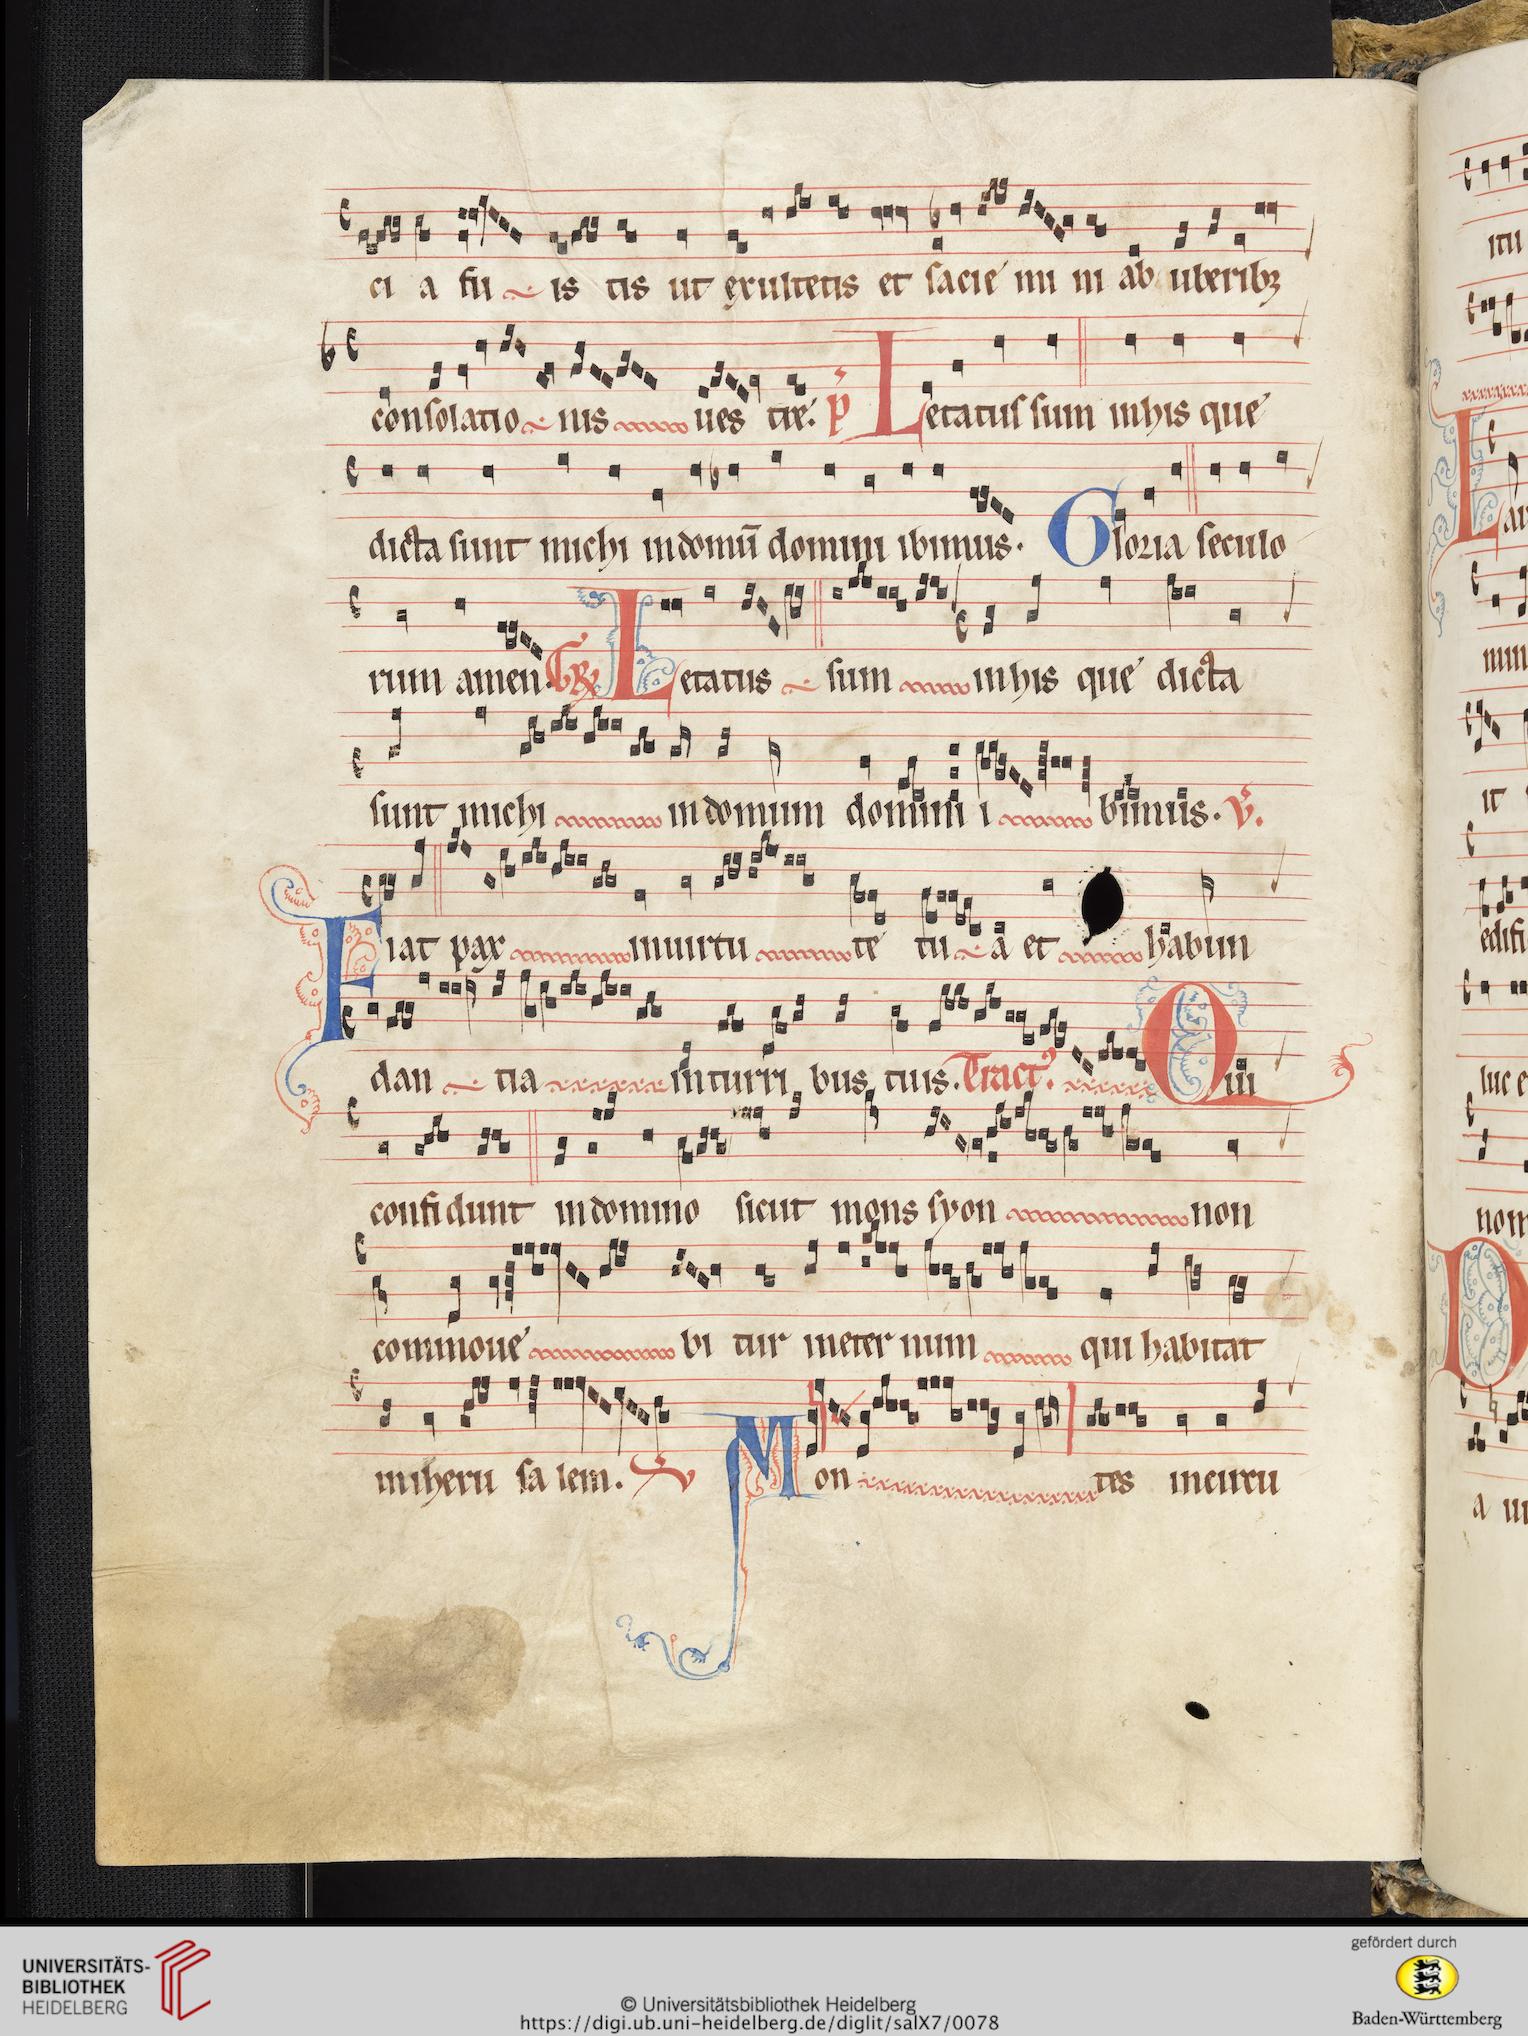 ci a fu is tis ut exultetis et sacie mi ni ab uberibꝫ
consolatio nis ues tre. p̃ Letatus sum in his que
dicta sunt michi in domū domini ibimus. Gloria seculo
rum amen. Gꝶ Letatus sum in his que dicta
sunt michi in domum domini i bimus. V̄.
Fiat pax in uirtu te tu a et habun
dan tia in turri bus tuis. Tractꝰ. Qui
confidunt in domino sicut mons syon non
commoue bi tur in eter num qui habitat
in iheru sa lem. V Mon tes in cirtu
itu
L
au
min
it
edifi
luc e
nom
D
a ui
UNIVERSITÄTS-
BIBLIOTHEK
HEIDELBERG
© Universitätsbibliothek Heidelberg
https://digi.ub.uni-heidelberg.de/diglit/salX7/0078
gefördert durch
Baden-Württemberg